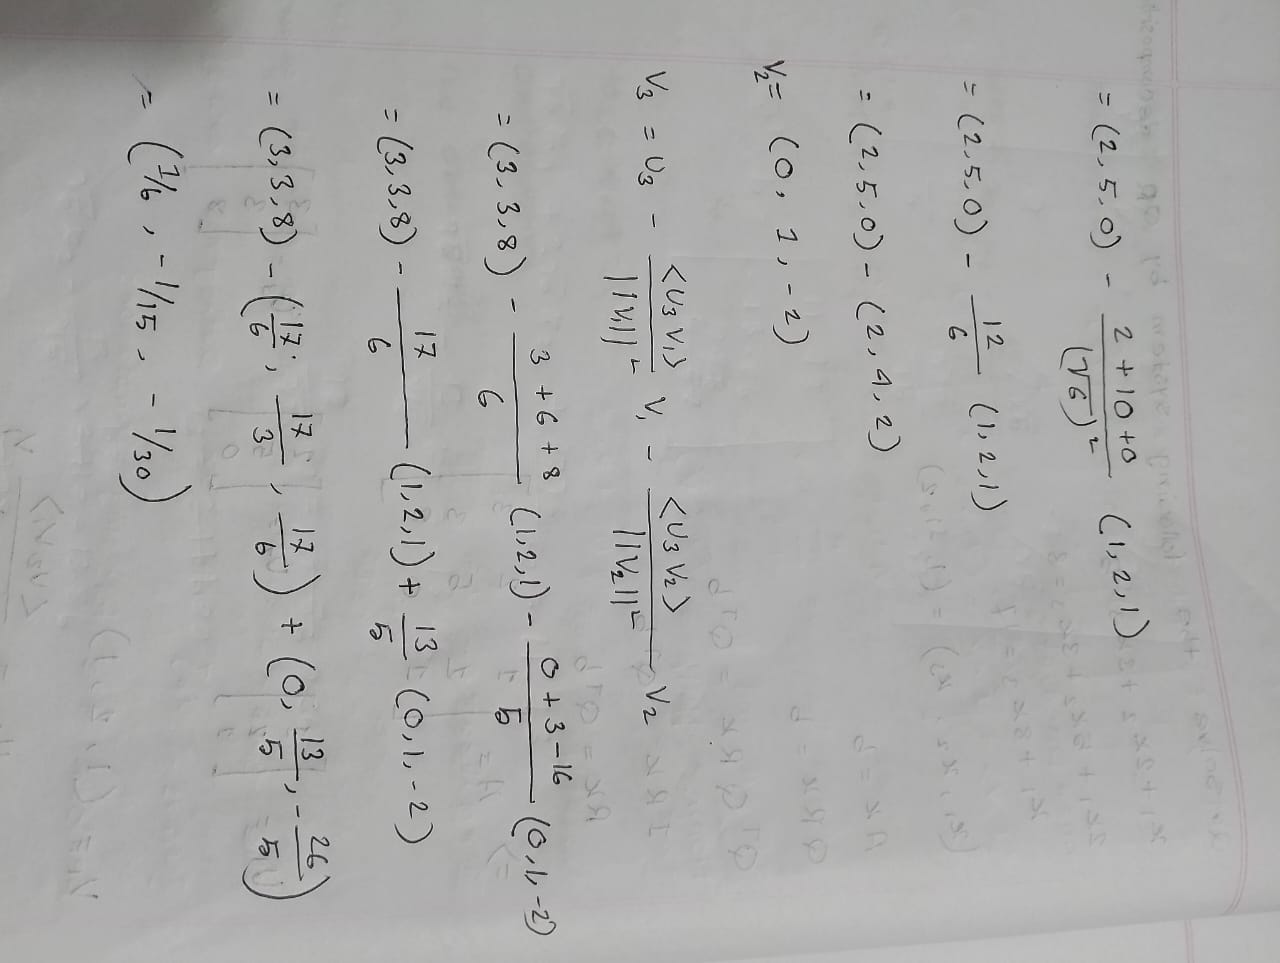 = (2,5,0) - \frac{2+10+0}{(√6)²} (1,2,1)
= (2,5,0) - \frac{12}{6} (1,2,1)
= (2,5,0) - (2,4,2)
V₂ = (0, 1, -2)
V₃ = U₃ - \frac{<U₃ V₁>}{||V₁||²} V₁ - \frac{<U₃ V₂>}{||V₂||²} V₂
= (3,3,8) - \frac{3+6+8}{6} (1,2,1) - \frac{0+3-16}{5} (0,1,-2)
= (3,3,8) - \frac{17}{6} (1,2,1) + \frac{13}{5} (0,1,-2)
= (3,3,8) - (\frac{17}{6}, \frac{17}{3}, \frac{17}{6}) + (0, \frac{13}{5}, -\frac{26}{5})
= (1/6, -1/15, -1/30)